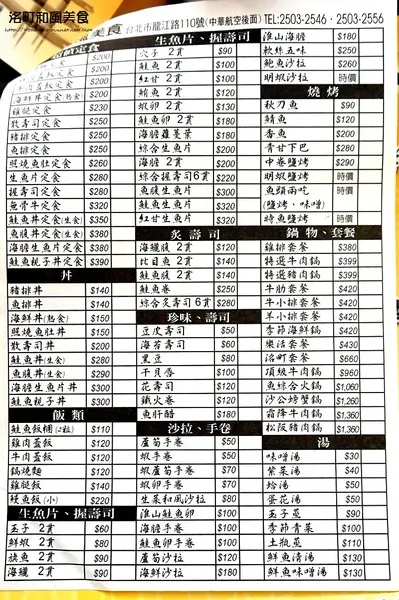 洛町和廚美食
美食 台北市龍江路110號(中華航空後面) TEL:2503-2546・2503-2556
定食
$200
$200
$200
海鮮丼定食(熟食) $200
雞腿定食 $230
散壽司定食 $250
豬排定食 $250
魚排定食 $250
照燒魚肚定食 $260
生魚片定食 $280
握壽司定食 $280
無骨牛定食 $320
鮭魚丼定食(生食) $350
魚腹丼定食(生食) $380
海膽生魚片定食 $380
鮭魚親子丼定食 $390
丼
豬排丼 $140
魚排丼 $140
海鮮丼(熟食) $150
照燒魚肚丼 $150
散壽司丼 $200
鮭魚丼(生食) $280
魚腹丼(生食) $290
海膽生魚片丼 $300
鮭魚親子丼 $300
飯類
鮭魚飯糰(2粒) $110
雞肉蓋飯 $120
牛肉蓋飯 $120
鍋燒麵 $120
雞腿飯 $140
鰻魚飯(小) $220
生魚片、握壽司
玉子 2貫 $60
鮮蝦 2貫 $80
旗魚 2貫 $90
海鱺 2貫 $90
生魚片、握壽司
穴子 2貫 $90
鮭魚 2貫 $100
鮪魚 2貫 $120
蝦卵 2貫 $130
鮭魚卵 2貫 $180
海膽蘿蔓葉 $180
綜合生魚片 $200
海膽 2貫 $200
綜合握壽司6貫 $220
魚腹生魚片 $300
鮭魚生魚片 $320
紅甘生魚片 $320
炙壽司
海鱺腹 2貫 $120
比目魚 2貫 $140
鮭魚腹 2貫 $140
鮭魚卷 $250
綜合炙壽司6貫 $280
珍味、壽司
豆皮壽司 $50
海苔壽司 $60
黑豆 $80
干貝唇 $100
花壽司 $120
鐵火卷 $120
魚肝醋 $180
沙拉、手卷
蘆筍手卷 $50
蝦手卷 $50
蝦卵手卷 $50
蘆筍蝦手卷 $70
生菜和風沙拉 $80
淮山鮭魚卵 $100
海膽手卷 $100
鮭魚卵手卷 $100
蘆筍沙拉 $120
海鮮沙拉 $180
淮山海膽 $180
軟絲五味 $250
鮑魚沙拉 $260
明蝦沙拉 時價
燒烤
秋刀魚 $90
鯖魚 $120
香魚 $200
青甘下巴 $280
中卷鹽烤 $290
明蝦鹽烤 時價
魚頭兩吃 時價
(鹽烤、味噌)
時魚鹽烤 時價
鍋物、套餐
雞排套餐 $380
特選牛肉鍋 $399
特選豬肉鍋 $399
牛肋套餐 $420
牛小排套餐 $420
羊小排套餐 $420
季節海鮮鍋 $420
樂活套餐 $430
洛町套餐 $660
頂級牛肉鍋 $960
魚綜合火鍋 $1,060
沙公螃蟹鍋 $1,260
霜降牛肉鍋 $1,360
松阪豬肉鍋 $1,360
湯
味噌湯 $30
紫菜湯 $40
蛤湯 $50
蛋花湯 $50
玉子蒸 $90
季節青菜 $100
土瓶蒸 $110
鮮魚清湯 $130
鮮魚味噌湯 $130